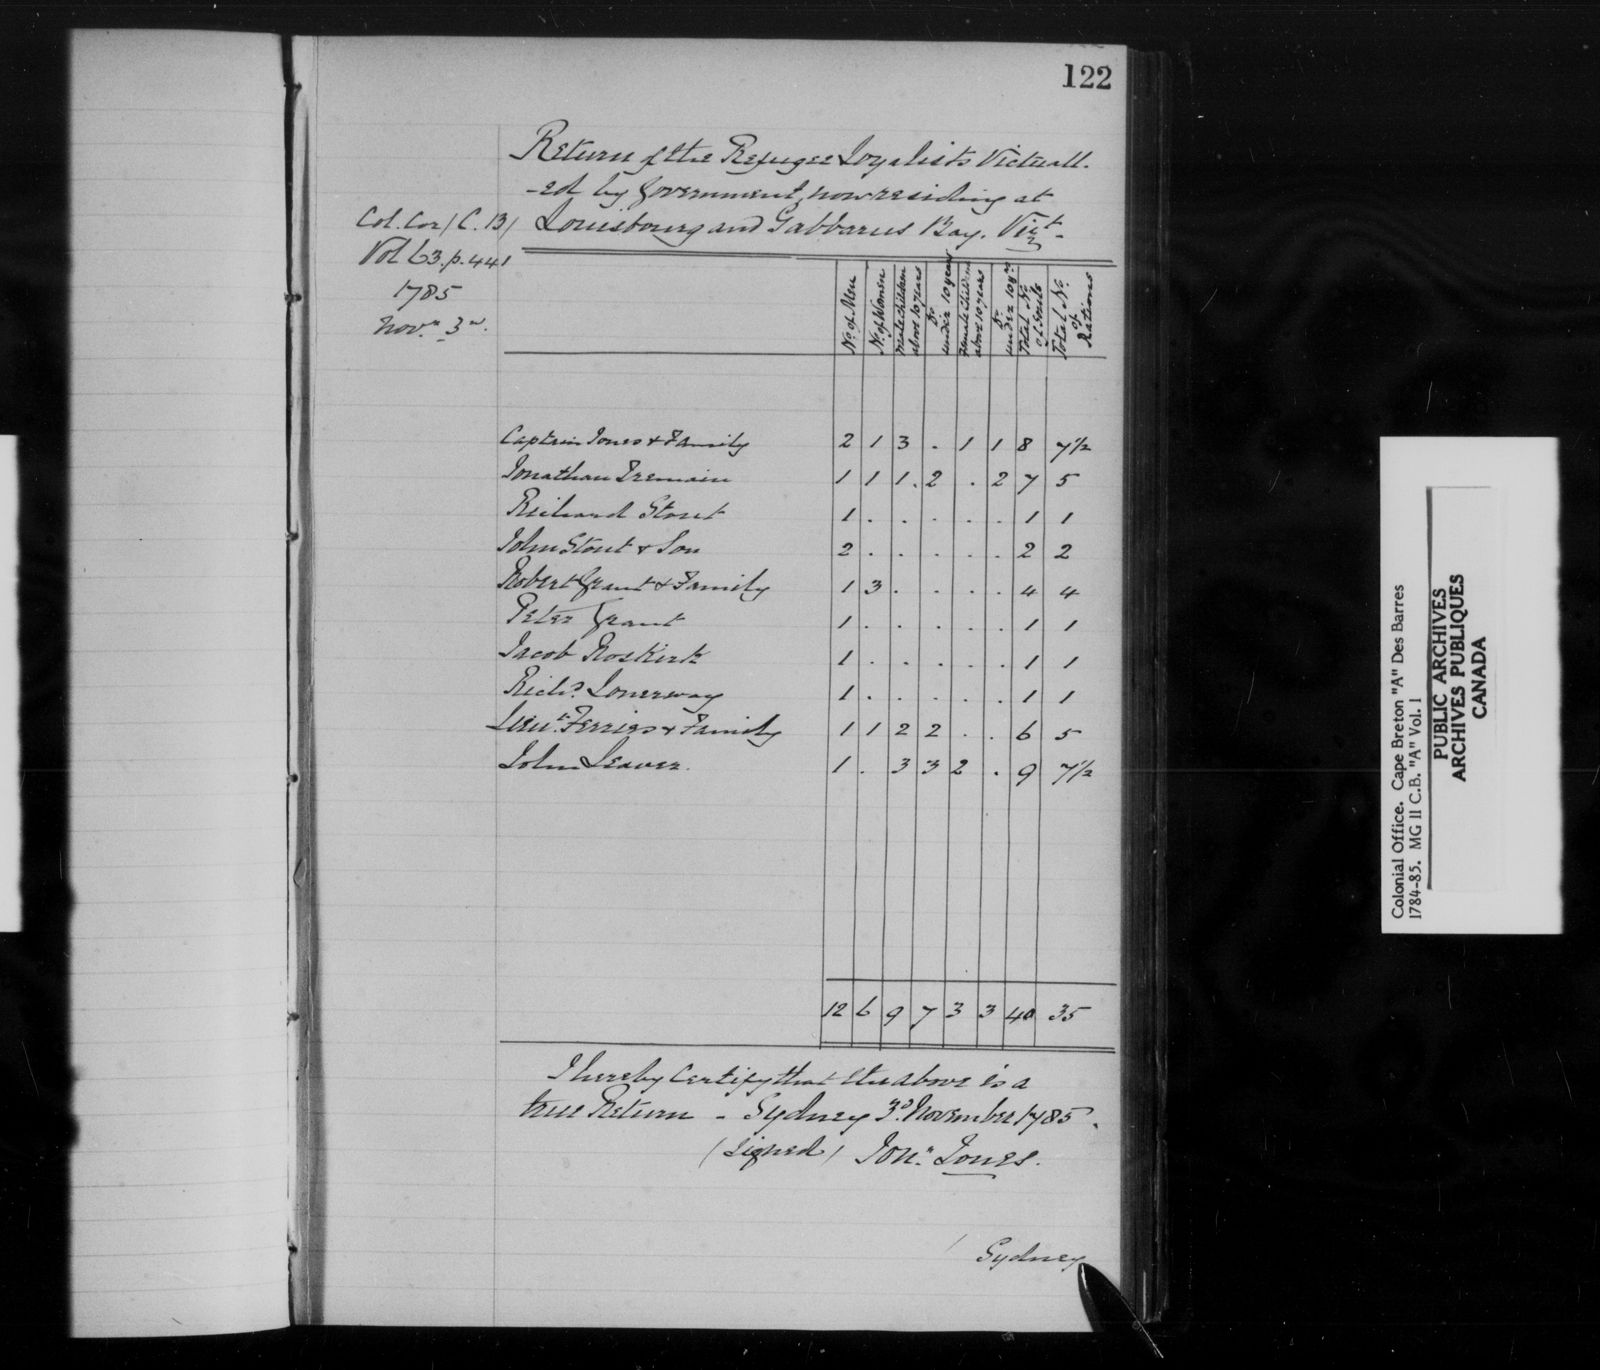 122
Return of the Refugee Loyalists Victuall-
-ed by Government, now residing at
Louisbourg and Gabbarus Bay. Vizt-
Col. Cor / C. 13 /
Vol 63. p. 441
1785
Novr 3d.
No. of Men
No. of Women
Male children above 10 years
Do under 10 years
Female children above 10 years
Do under 10 yrs
Total No. of Souls
Total No. of Rations
Captain Jones & Family 2 1 3 . 1 1 8 7½
Jonathan Tremain 1 1 1 . 2 . 2 7 5
Richard Stout 1 . . . . . 1 1
John Stout & Son 2 . . . . . 2 2
Robert Grant & Family 1 3 . . . . 4 4
Peter Grant 1 . . . . . 1 1
Jacob Roskirk 1 . . . . . 1 1
Richd. Lonerway 1 . . . . . 1 1
Lieut. Ferrier & Family 1 1 2 2 . . 6 5
John Leaver. 1 . 3 3 2 . 9 7½
12 6 9 7 3 3 40 35
I hereby Certify that the above is a
true Return - Sydney 3d. November 1785.
(Signed) Jonn. Jones.
Sydney
Colonial Office. Cape Breton "A" Des Barres
1784-85. MG 11 C.B. "A" Vol. 1
PUBLIC ARCHIVES
ARCHIVES PUBLIQUES
CANADA